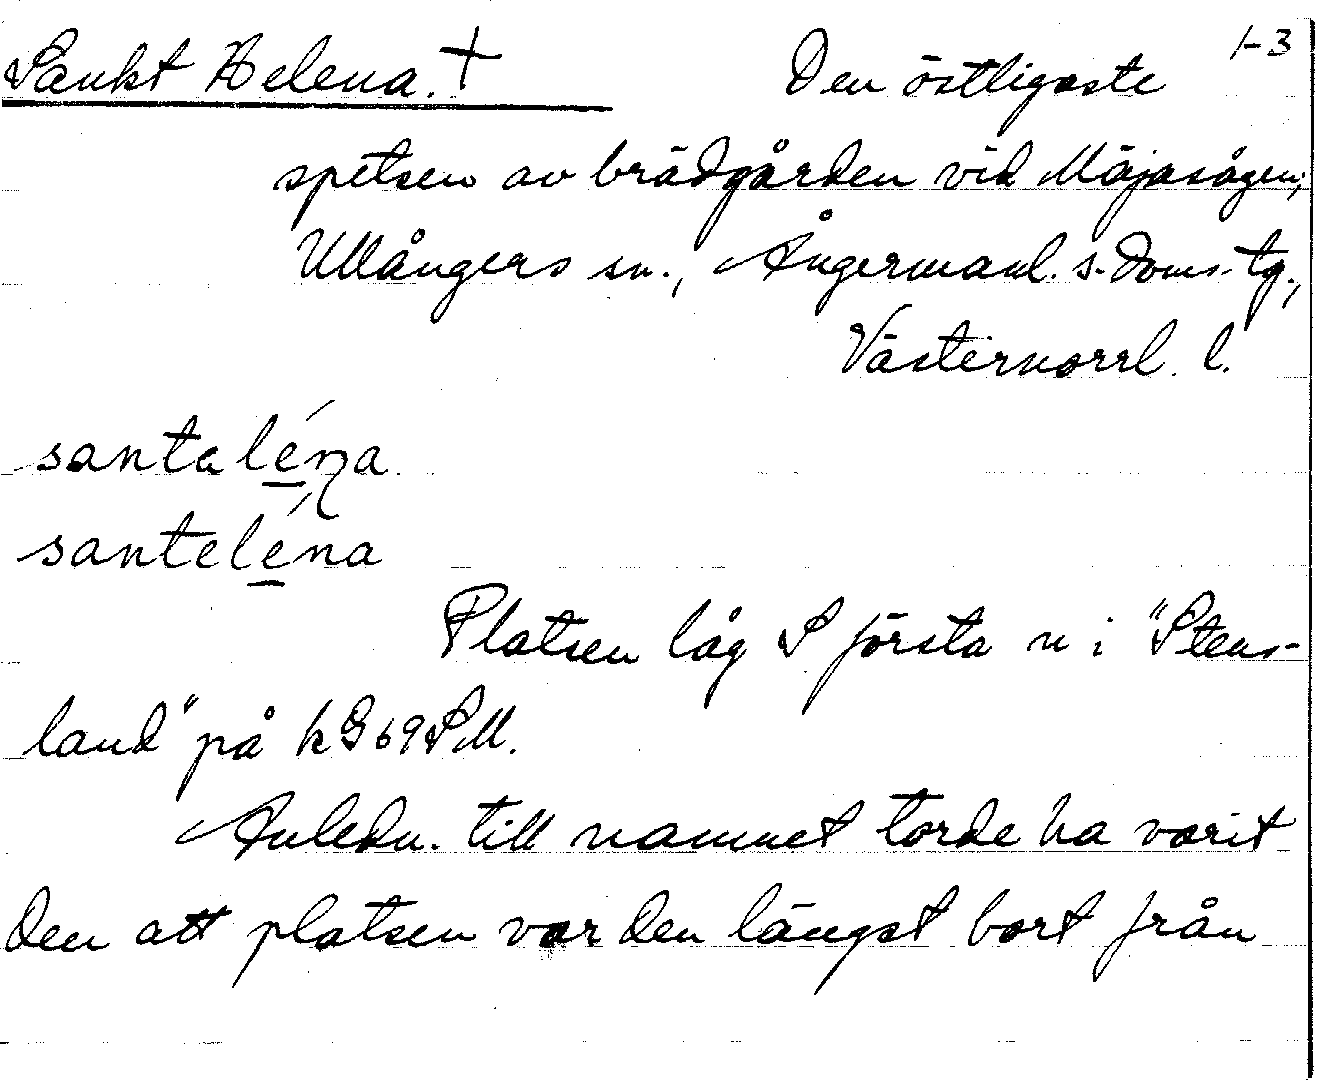 1-3
Sankt Helena. + Den östligaste
spetsen av brädgården vid Mäjasågen,
Ullångers sn., Ångermanl. s. doms. tg.,
Västernorrl. l.
santaléna.
santeléna
Platsen låg S första n i "Stens-
land" på kG69SM.
Anledn. till namnet torde ha varit
den att platsen var den längst bort från